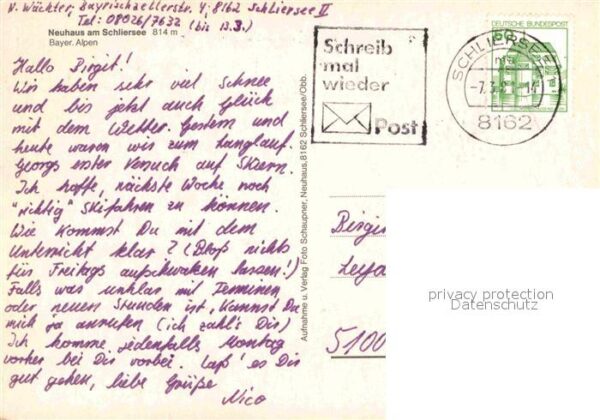 N. Wächter, Bayrischzellerstr. 4, 8162 Schliersee II
Tel: 08026/7632 (bis 13.3.)
Neuhaus am Schliersee 814 m
Bayer. Alpen
Hallo Birgit!
Wir haben sehr viel Schnee
und bis jetzt auch Glück
mit dem Wetter. Gestern und
heute waren wir zum Langlauf.
Georgs erster Versuch auf Skiern.
Ich hoffe, nächste Woche noch
"richtig" Skifahren zu können.
Wie kommst Du mit dem
Unterricht klar? (Bloß nichts
für Freitags aufschwatzen lassen!)
Falls was unklar mit Terminen
oder neuen Stunden ist, kannst Du
mich ja anrufen (ich zahl's Dir)
Ich komme jedenfalls Montag
vorher bei Dir vorbei. Laß' es Dir
gut gehen, liebe Grüße
Nico
Aufnahme u. Verlag Foto Schaupner, Neuhaus, 8162 Schliersee/Obb.
Schreib
mal
wieder
Post
DEUTSCHE BUNDESPOST
SCHLIERSEE
8162
Birgi
5100
privacy protection
Datenschutz